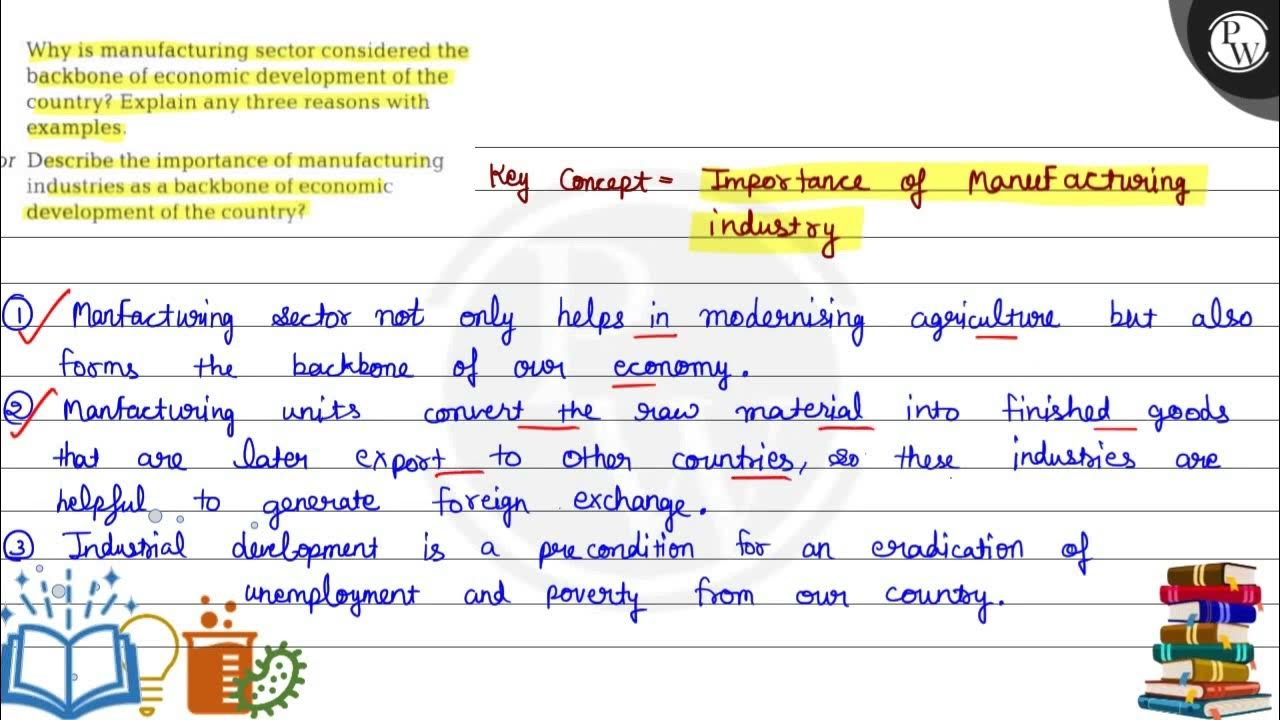 Why is manufacturing sector considered the
backbone of economic development of the
country? Explain any three reasons with
examples.
or Describe the importance of manufacturing
industries as a backbone of economic
development of the country?
Key Concept = Importance of Manufacturing
industry
① Manfacturing sector not only helps in modernising agriculture but also
forms the backbone of our economy.
② Manfacturing units convert the raw material into finished goods
that are later export to other countries, so these industries are
helpful to generate foreign exchange.
③ Industrial development is a precondition for an eradication of
unemployment and poverty from our country.
PW
PW